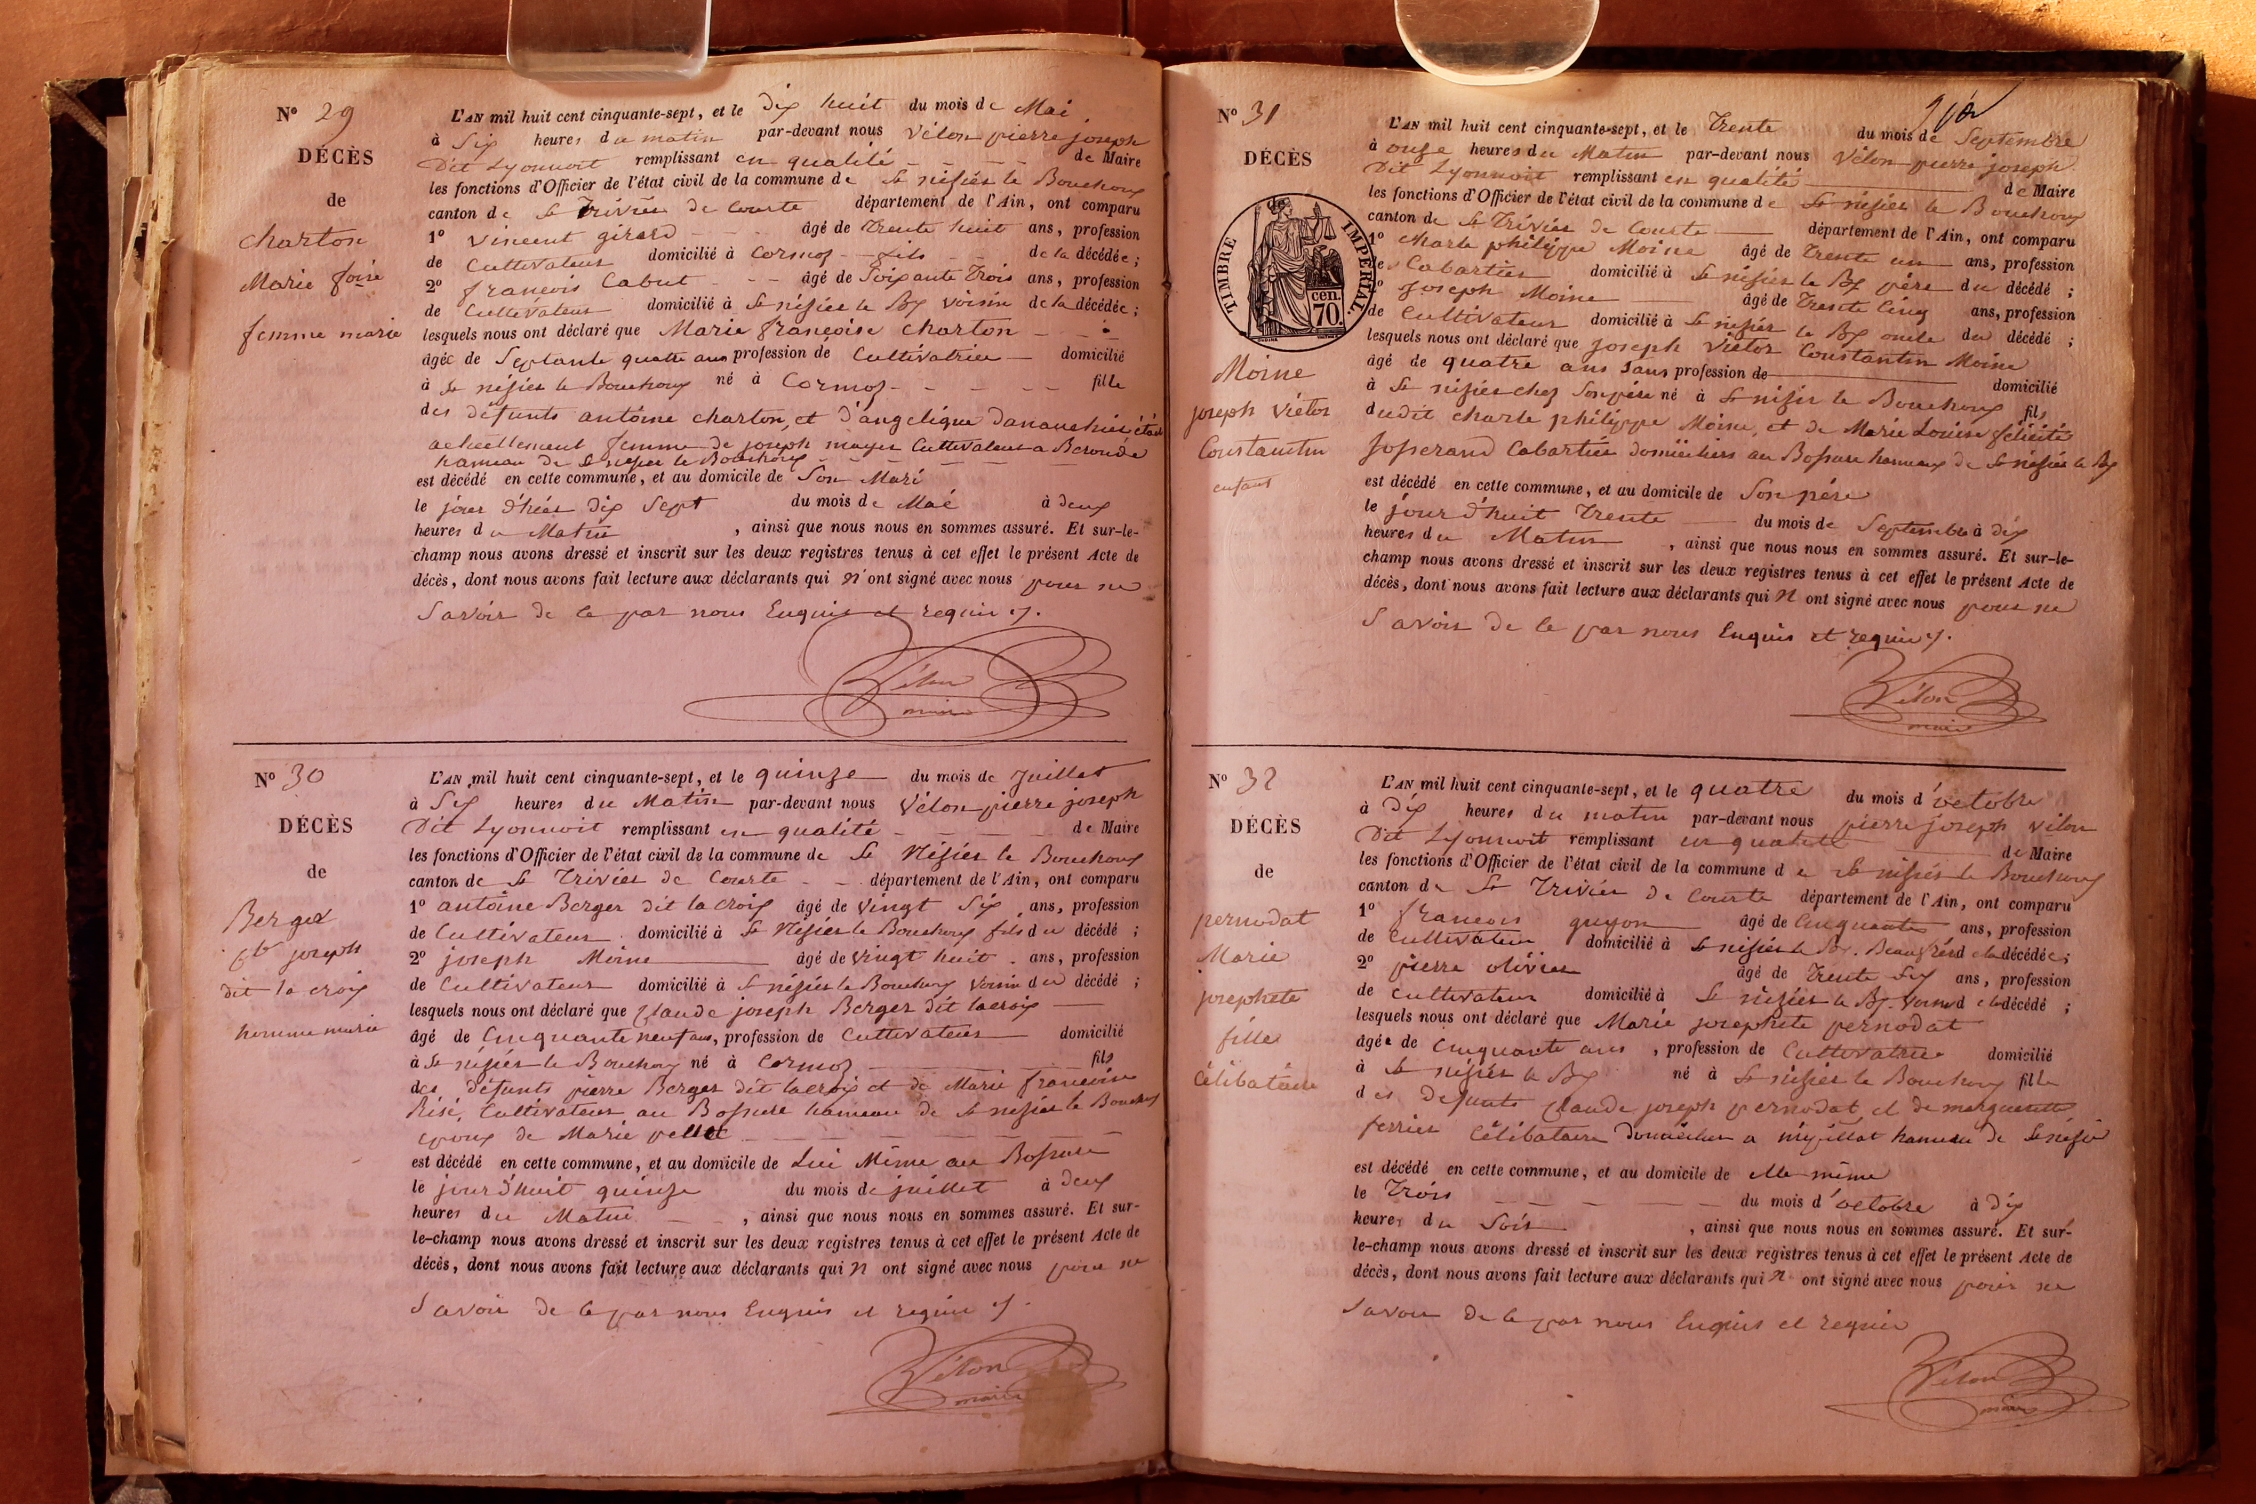 Nº 29
DÉCÈS
de
charton
Marie foise
femme marie
L'AN mil huit cent cinquante-sept, et le dix huit du mois de Mai
à Six heures du matin par-devant nous Vélon pierre joseph
Dit Lyonnoit remplissant en qualité de Maire
les fonctions d'Officier de l'état civil de la commune de St nisier le Bouchoux
canton de St Trivier de Courte département de l'Ain, ont comparu
1º Vincent girard âgé de trente huit ans, profession
de Cultivateur domicilié à Cormoz fils de la décédée ;
2º françois Cabut âgé de Soixante trois ans, profession
de Cultivateur domicilié à St nisier le Bx voisin de la décédée ;
lesquels nous ont déclaré que Marie françoise charton
âgée de Septante quatre ans profession de Cultivatrice domicilié
à St nisier le Bouchoux né à Cormoz fille
des défunts antoine charton, et d'angelique
actuellement femme de joseph mayer Cultivateur a
hameau de St nisier le Bouchoux
est décédé en cette commune, et au domicile de Son Mari
le jour d'hier dix Sept du mois de Mai à deux
heures du Matin , ainsi que nous nous en sommes assuré. Et sur-le-
champ nous avons dressé et inscrit sur les deux registres tenus à cet effet le présent Acte de
décès, dont nous avons fait lecture aux déclarants qui n'ont signé avec nous pour ne
Savoir de ce par nous Enquis et requis ./.
Vélon
maire
Nº 30
DÉCÈS
de
Berger
Cde joseph
dit la croix
homme marie
L'AN mil huit cent cinquante-sept, et le quinze du mois de Juillet
à Six heures du Matin par-devant nous Vélon pierre joseph
Dit Lyonnoit remplissant en qualité de Maire
les fonctions d'Officier de l'état civil de la commune de St Nisier le Bouchoux
canton de St Trivier de Courte département de l'Ain, ont comparu
1º antoine Berger dit la croix âgé de vingt Six ans, profession
de Cultivateur domicilié à St Nisier le Bouchoux fils du décédé ;
2º joseph Moine âgé de vingt huit ans, profession
de Cultivateur domicilié à St nisier le Bouchoux voisin du décédé ;
lesquels nous ont déclaré que Claude joseph Berger dit lacroix
âgé de Cinquante neuf ans, profession de Cultivateur domicilié
à St nisier le Bouchoux né à Cormoz fils
des défunts pierre Berger dit lacroix et de Marie françoise
Cultivateur au Bossure hameau de St nisier le Bouchoux
époux de Marie pellet
est décédé en cette commune, et au domicile de Lui Même au Bossure
le jour d'huit quinze du mois de juillet à deux
heures du Matin , ainsi que nous nous en sommes assuré. Et sur-
le-champ nous avons dressé et inscrit sur les deux registres tenus à cet effet le présent Acte de
décès, dont nous avons fait lecture aux déclarants qui n ont signé avec nous pour ne
Savoir de ce par nous Enquis et requis ./.
Vélon
maire
Nº 31
DÉCÈS
TIMBRE IMPÉRIAL
cen.
70
Moine
joseph Victor
Constantin
enfant
L'AN mil huit cent cinquante-sept, et le Trente du mois de Septembre
à onze heures du Matin par-devant nous Vélon pierre joseph
Dit Lyonnoit remplissant en qualité de Maire
les fonctions d'Officier de l'état civil de la commune de St nisier le Bouchoux
canton de St Trivier de Courte département de l'Ain, ont comparu
1º Charle philippe Moine âgé de Trente un ans, profession
de Cabartier domicilié à St nisier le Bx père du décédé ;
2º Joseph Moine âgé de Trente Cinq ans, profession
de Cultivateur domicilié à St nisier le Bx oncle du décédé ;
lesquels nous ont déclaré que joseph Victor Constantin Moine
âgé de quatre ans Sans profession de domicilié
à St nisier chez Son père né à St nisier le Bouchoux fils
dudit charle philippe Moine, et de Marie Louise félicité
Josserand Cabartier domiciliers au Bossure hameau de St nisier le Bx
est décédé en cette commune, et au domicile de Son père
le jour d'huit Trente du mois de Septembre à dix
heures du Matin , ainsi que nous nous en sommes assuré. Et sur-le-
champ nous avons dressé et inscrit sur les deux registres tenus à cet effet le présent Acte de
décès, dont nous avons fait lecture aux déclarants qui n ont signé avec nous pour ne
Savoir de ce par nous Enquis et requis ./.
Vélon
maire
Nº 32
DÉCÈS
de
pernodat
Marie
josephete
fille
célibataire
L'AN mil huit cent cinquante-sept, et le quatre du mois d'octobre
à Dix heures du matin par-devant nous pierre joseph Vélon
Dit Lyonnoit remplissant en qualité de Maire
les fonctions d'Officier de l'état civil de la commune de St nisier le Bouchoux
canton de St Trivier de Courte département de l'Ain, ont comparu
1º françois guyon âgé de Cinquante ans, profession
de Cultivateur domicilié à St nisier le Bx. Beaufrère d la décédée ;
2º pierre olivier âgé de Trente Six ans, profession
de cultivateur domicilié à St nisier le Bx voisin d la décédé ;
lesquels nous ont déclaré que Marie josephete pernodat
âgée de Cinquante ans , profession de Cultivatrice domicilié
à St nisier le Bx né à St nisier le Bouchoux fille
des defunts Claude joseph pernodat, et de marguerite
ferrier Célibataire domicilier a hameau de St nisier
est décédé en cette commune, et au domicile de elle même
le Trois du mois d'octobre à dix
heures du Soir , ainsi que nous nous en sommes assuré. Et sur-
le-champ nous avons dressé et inscrit sur les deux registres tenus à cet effet le présent Acte de
décès, dont nous avons fait lecture aux déclarants qui n ont signé avec nous pour ne
Savoir de ce par nous Enquis et requis
Vélon
maire